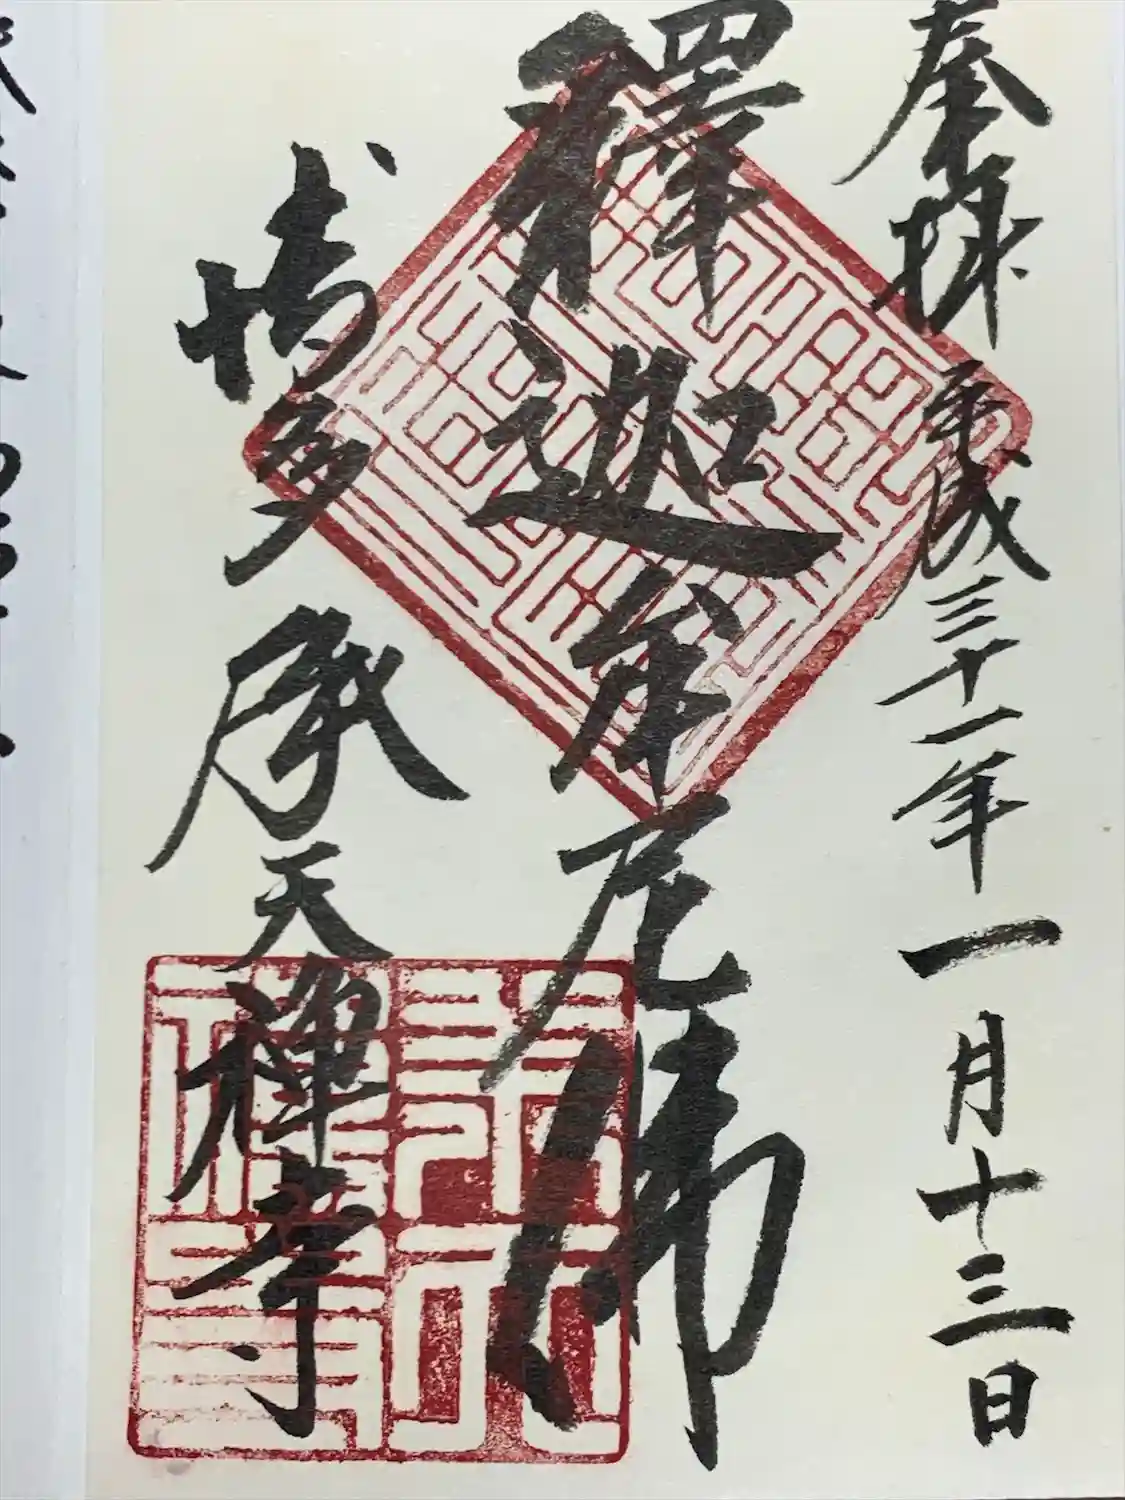 奉拝 平成三十一年一月十三日
釋迦牟尼佛
博多 承天禅寺
承天禅寺